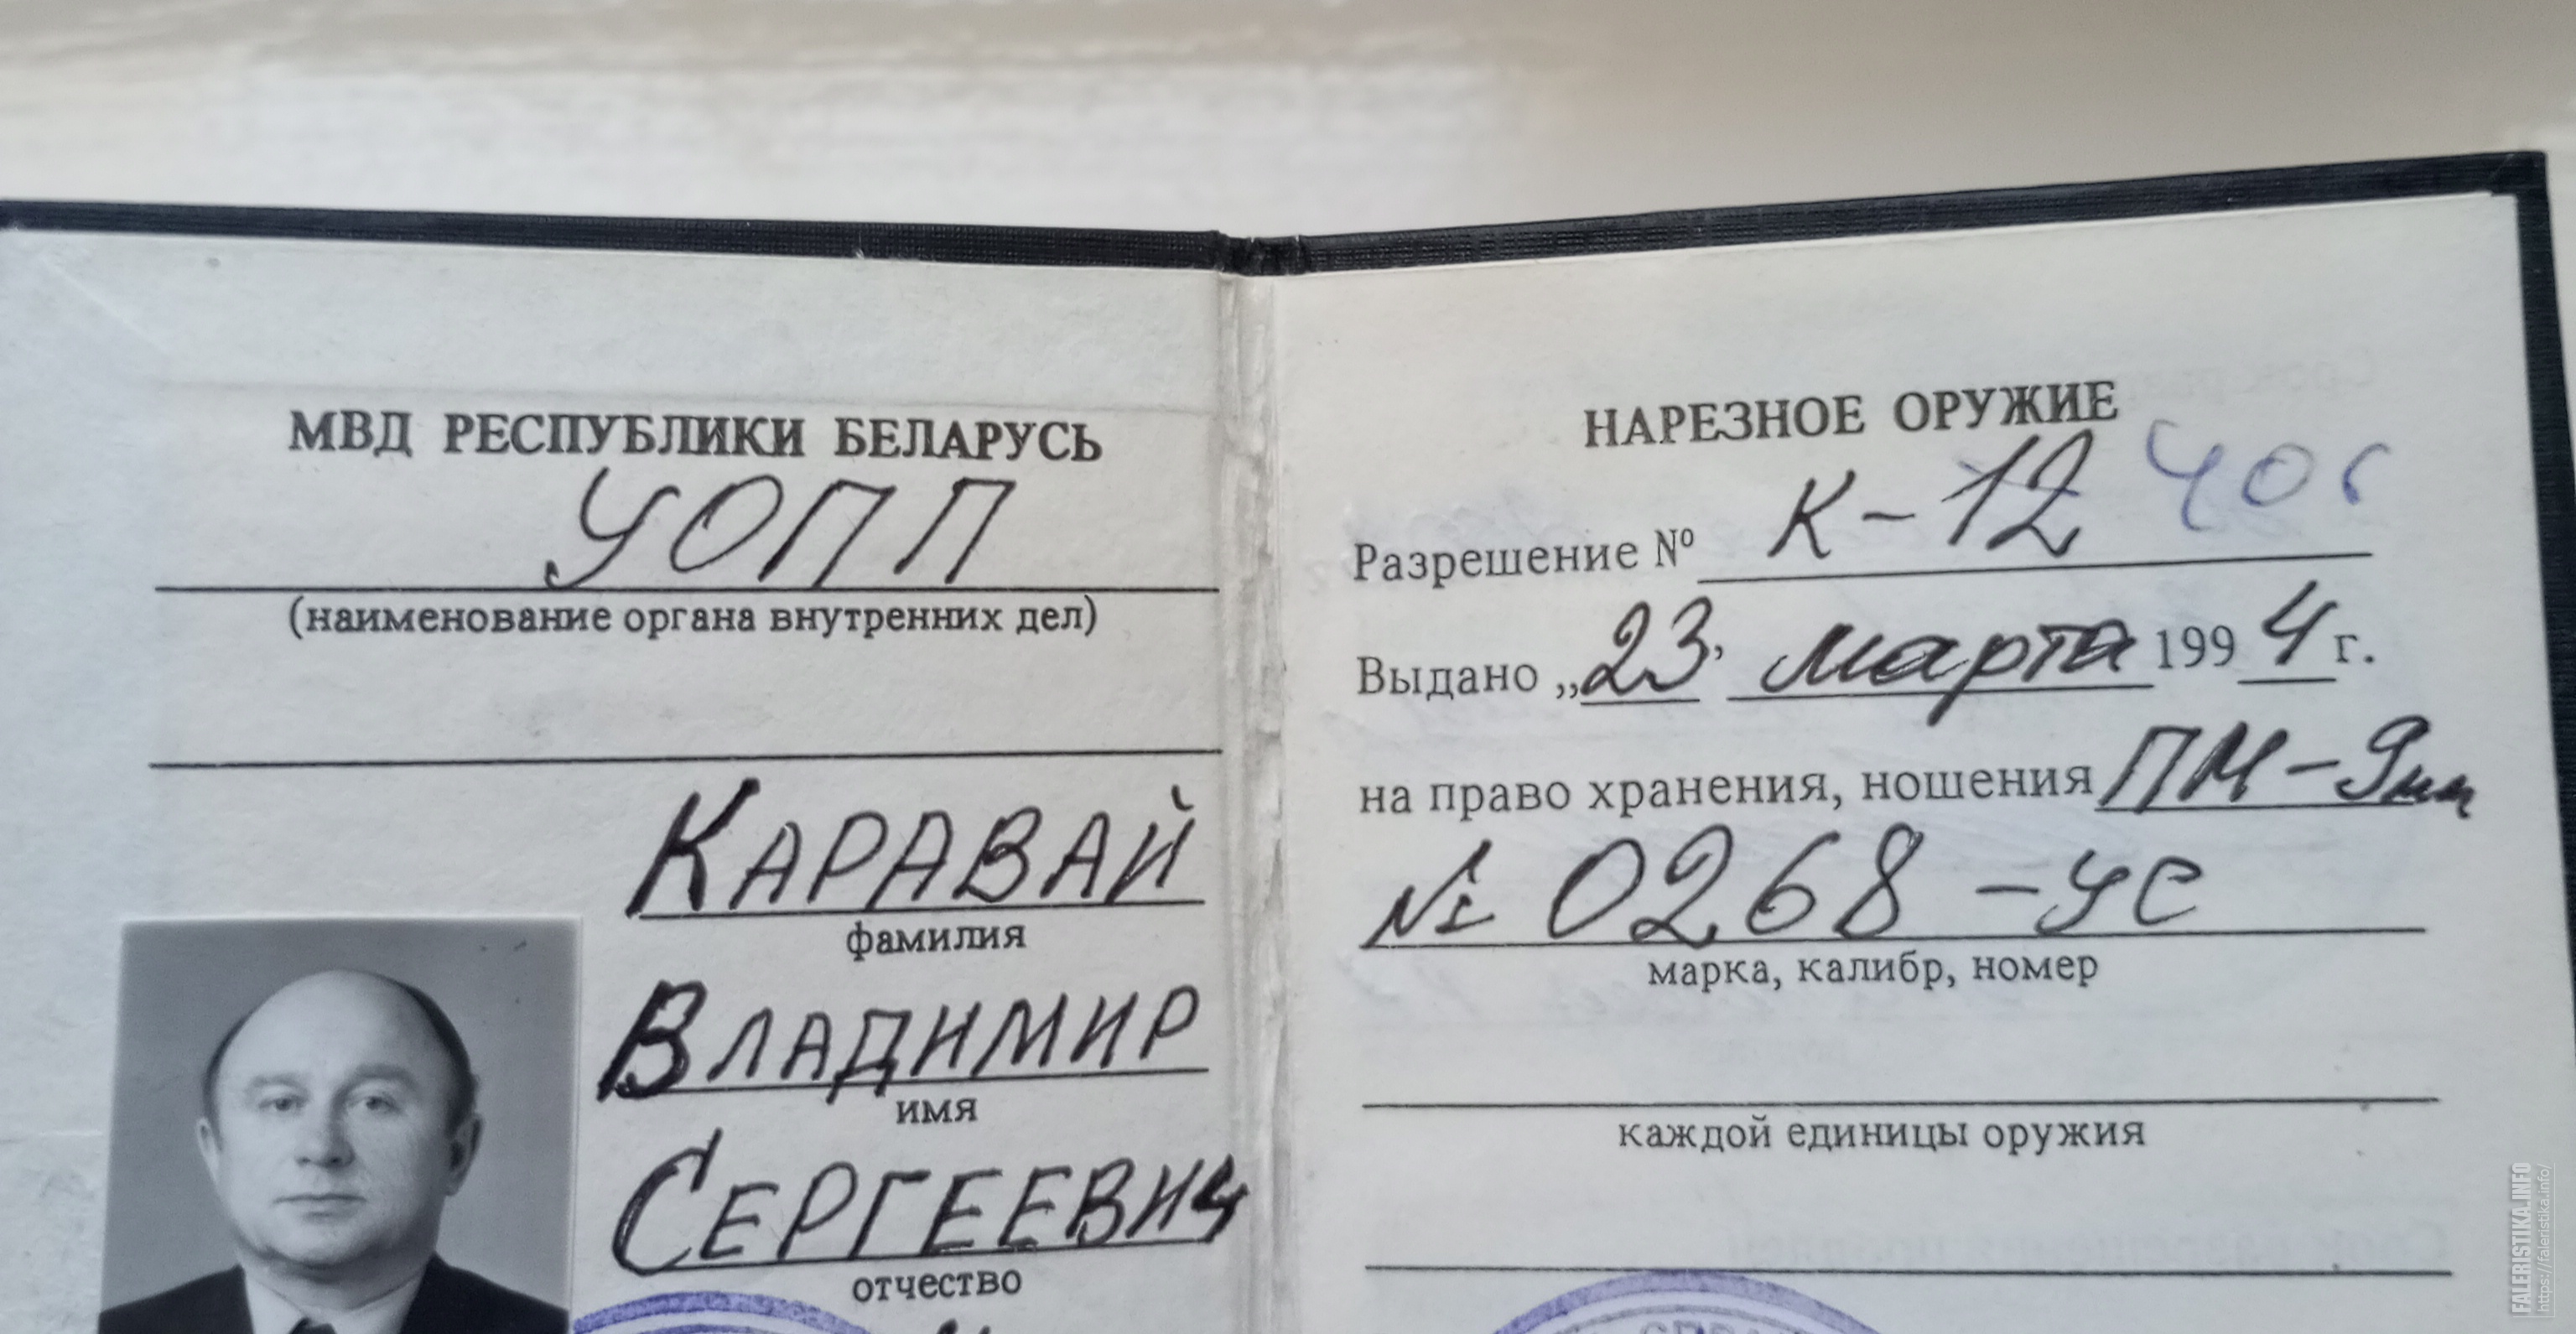 МВД РЕСПУБЛИКИ БЕЛАРУСЬ
УОПП
(наименование органа внутренних дел)
КАРАВАЙ
фамилия
ВЛАДИМИР
имя
СЕРГЕЕВИЧ
отчество
НАРЕЗНОЕ ОРУЖИЕ
Разрешение № К-12
Выдано „23" марта 1994 г.
на право хранения, ношения ПМ-9мм
№ 0268-УС
марка, калибр, номер
каждой единицы оружия
FALERISTIKA.INFO
https://faleristika.info/